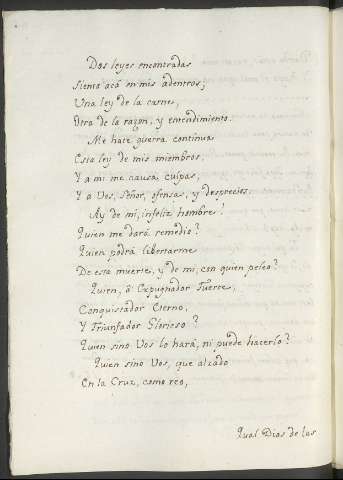 Dos leyes encontradas
Siento acá en mis adentros;
Una ley de la carne,
Otra de la razon, y entendimiento.
Me hace guerra continua
Esta ley de mis miembros,
Y a mi me causa culpas,
Y a Vos, Señor, ofensas, y desprecios.
Ay de mi, infeliz hombre!
Quien me dará remedio?
Quien podrá libertarme
De esta muerte, y de mi, con quien peleo?
Quien, ò Expugnador Fuerte,
Conquistador Eterno,
Y Triunfador Glorioso?
Quien sino Vos lo hará, ni puede hacerlo?
Quien sino Vos, que alzado
En la Cruz, como reo,
Qual Dios de las